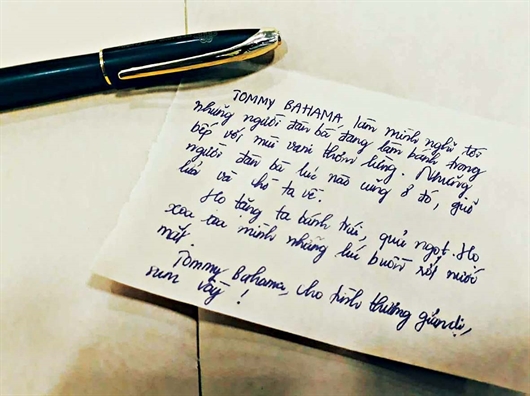 TOMMY BAHAMA làm mình nghĩ tới
những người đàn bà đang làm bánh trong
bếp với mùi vani thơm lừng. Những
người đàn bà lúc nào cũng ở đó, giữ
lửa và chờ ta về.
Họ tặng ta bánh trái, quả ngọt. Họ
xoa ta mình những lúc buồn rớt nước
mắt.
Tommy Bahama, cho tình thương giản dị,
sum vầy!